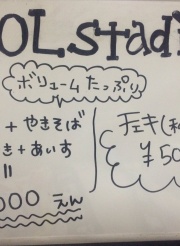 OL.stadi
ボリュームたっぷり
+ やきそば
き + あいす
〃
000 えん
チェキ(私
¥50